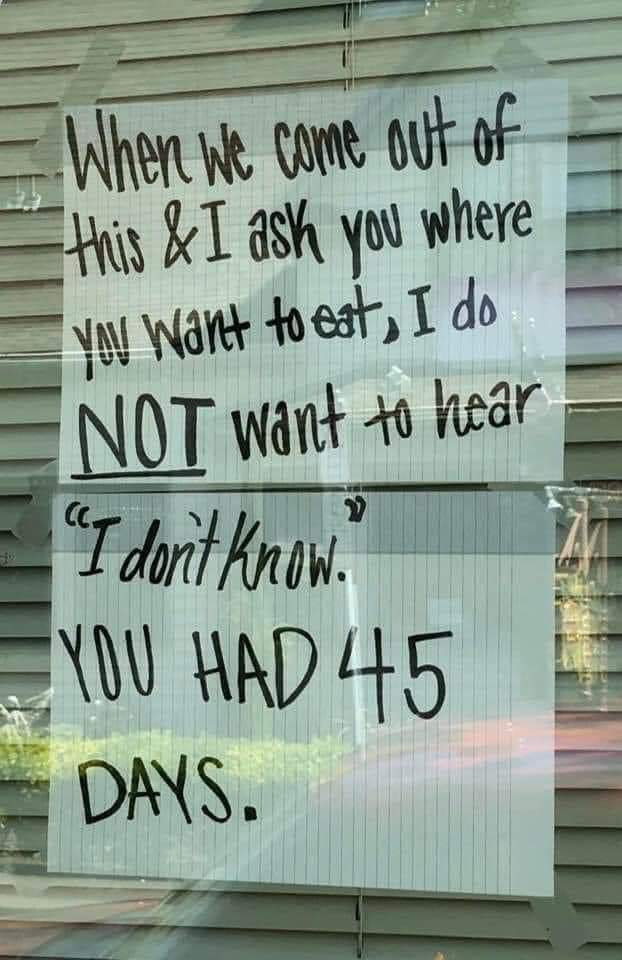 When we come out of
this & I ask you where
you want to eat, I do
NOT want to hear
"I don't know."
YOU HAD 45
DAYS.